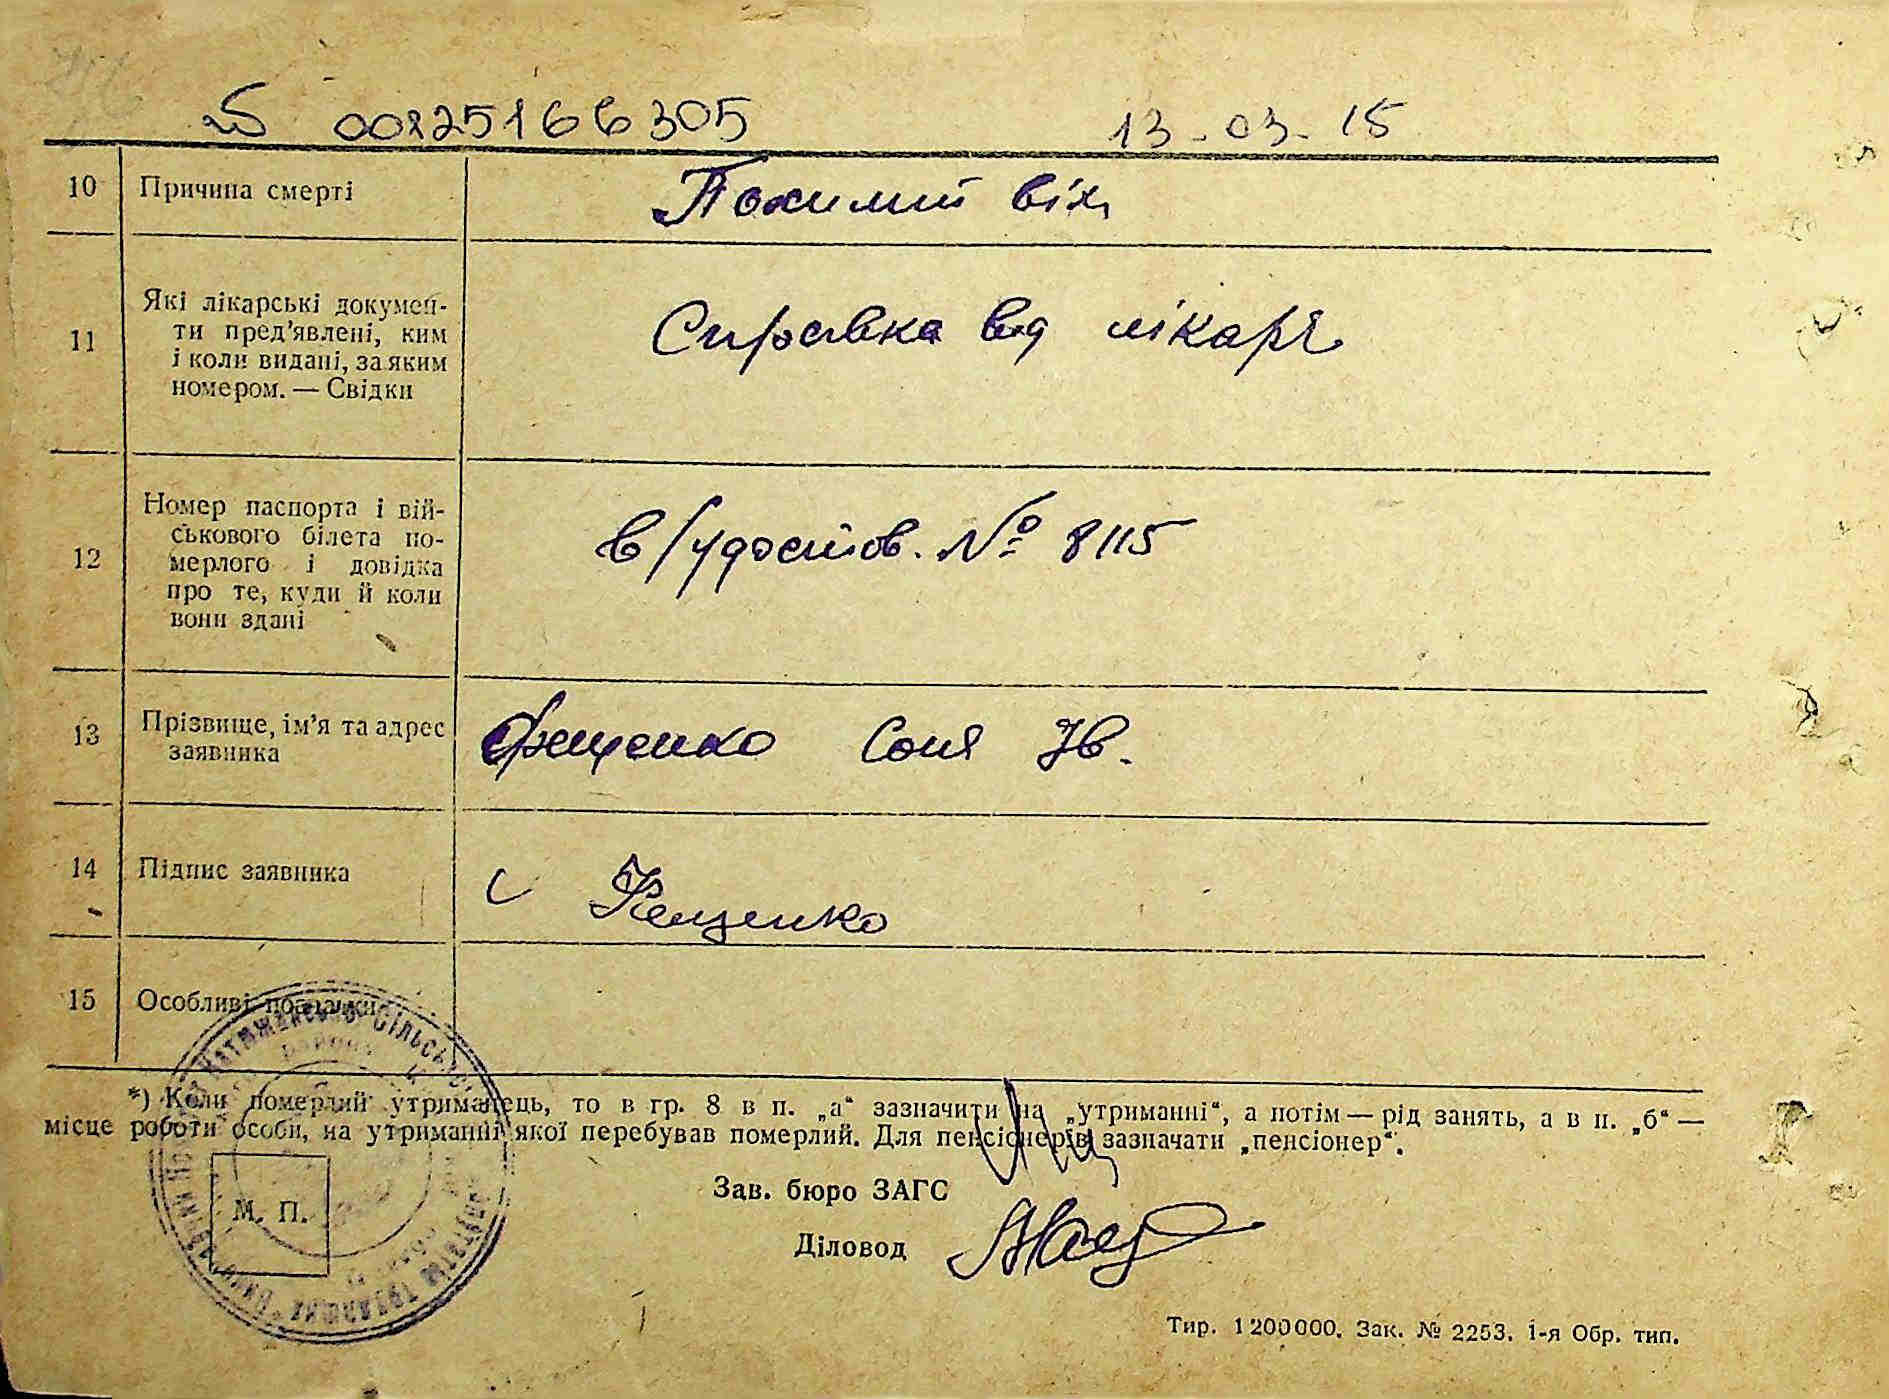 00225166305 13-03-15
10 Причина смерті Похилий вік
11 Які лікарські докумен-
ти пред'явлені, ким
і коли видані, за яким
номером. — Свідки
Справка від лікаря
12 Номер паспорта і вій-
ськового білета по-
мерлого і довідка
про те, куди й коли
вони здані
в/удостов. № 8115
13 Прізвище, ім'я та адрес
заявника
Фещенко Соня Ів.
14 Підпис заявника Фещенко
15 Особливі познаки
*) Коли померлий утриманець, то в гр. 8 в п. „а“ зазначити на „утриманні“, а потім — рід занять, а в п. „б“ —
місце роботи особи, на утриманні якої перебував померлий. Для пенсіонерів зазначати „пенсіонер“.
Зав. бюро ЗАГС
М. П.
Діловод
Тир. 1200000. Зак. № 2253. 1-я Обр. тип.